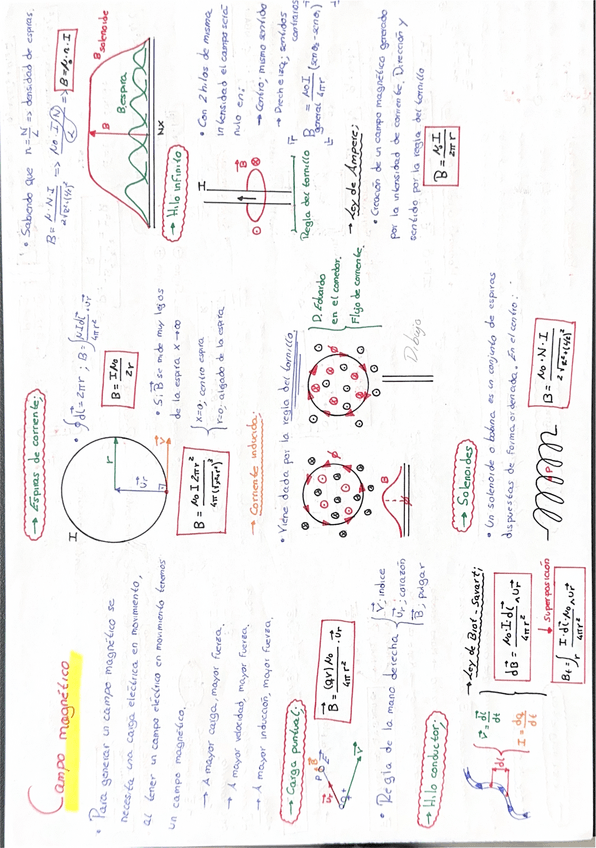 Campo magnético
• Para generar un campo magnético se
necesita una carga eléctrica en movimiento,
al tener un campo eléctrico en movimiento tenemos
un campo magnético.
→ A mayor carga, mayor fuerza.
→ A mayor velocidad, mayor fuerza.
→ A mayor inducción, mayor fuerza.
→ Carga puntual:
B = (q v) μ0 / 4πr² · ur
• Regla de la mano derecha
v: indice
ur: corazón
B: pulgar
→ Hilo conductor:
v = dl/dt
I = dq/dt
dl
→ Ley de Biot-Savart:
dB = μ0 · I · dl / 4πr² ∧ ur
↓ superposición
Bt = ∫r I · dl · μ0 ∧ ur / 4πr²
→ Espiras de corriente:
I
r
ur
v
• ∮dl = 2πr ; B =
B = I μ0 / 2r
• Si B se mide muy lejos
de la espira x→∞
x=0; centro espira
r=0; alejado de la espira
→ Corriente inducida:
• Viene dada por la regla del tornillo
B
D. Eduardo
en el comedor.
Flujo de corriente.
Dibujo
→ Solenoides
• Un solenoide o bobina es un conjunto de espiras
dispuestas de forma ordenada. En el centro:
B = μ0 · N · I / 2√R²+(L/2)²
• Sabiendo que n = N/L => densidad de espiras:
B = μ0 · n · I
B solenoide
B espira
B
NX
→ Hilo infinito
I
B
Regla del tornillo
• Con 2 hilos de misma
intensidad el campo será
nulo en:
→ Centro; mismo sentido
B general = μ0 I / 4πr (sen θ2 - sen θ1)
→ Ley de Ampere:
• Creación de un campo magnético generado
por la intensidad de corriente. Dirección y
sentido por la regla del tornillo
B = μ0 I / 2πr